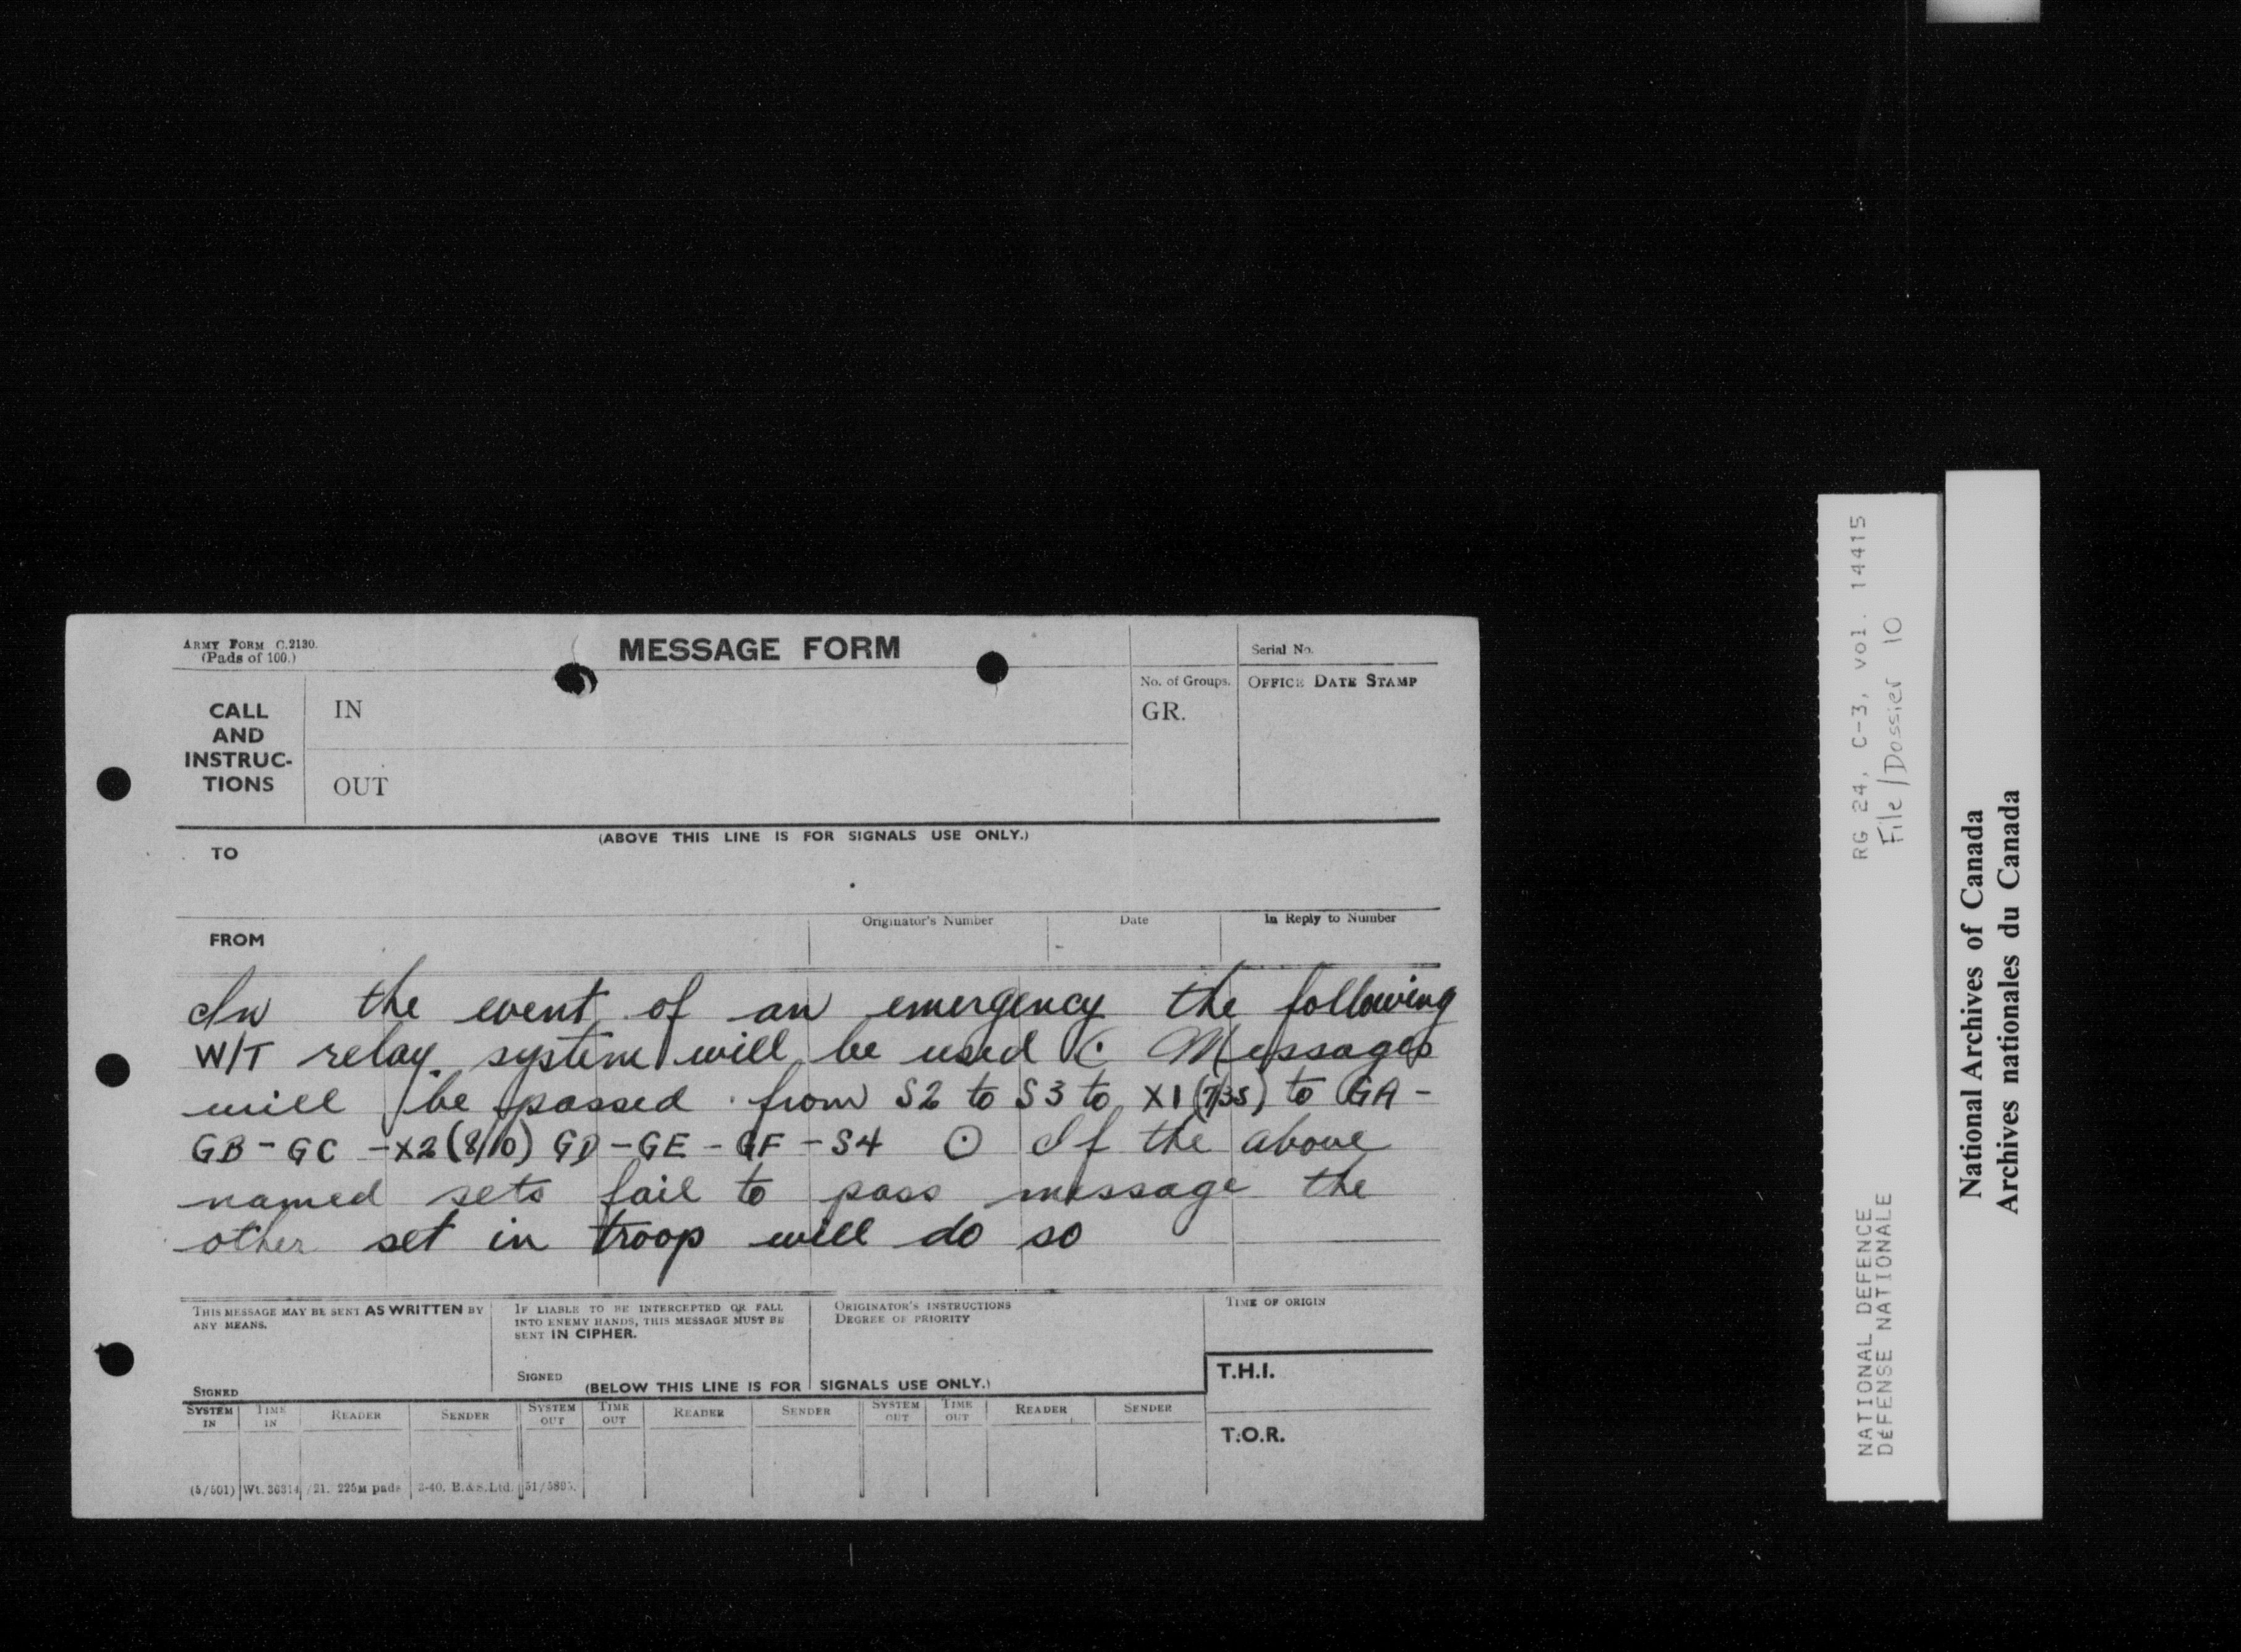 ARMY FORM C.2130.
(Pads of 100.)
MESSAGE FORM
Serial No.
CALL AND INSTRUC-TIONS
IN
OUT
No. of Groups.
GR.
OFFICE DATE STAMP
(ABOVE THIS LINE IS FOR SIGNALS USE ONLY.)
TO
FROM
Originator's Number
Date
In Reply to Number
In the event of an emergency the following
W/T relay system will be used (· Messages
will be passed from S2 to S3 to X1 (7/35) to GA -
GB - GC - X2 (8/10) GD - GE - GF - S4 ⊙ If the above
named sets fail to pass message the
other set in troop will do so
THIS MESSAGE MAY BE SENT AS WRITTEN BY
ANY MEANS.
SIGNED
IF LIABLE TO BE INTERCEPTED OR FALL
INTO ENEMY HANDS, THIS MESSAGE MUST BE
SENT IN CIPHER.
SIGNED
ORIGINATOR'S INSTRUCTIONS
DEGREE OF PRIORITY
TIME OF ORIGIN
(BELOW THIS LINE IS FOR SIGNALS USE ONLY.)
T.H.I.
T.O.R.
SYSTEM IN
TIME IN
READER
SENDER
SYSTEM OUT
TIME OUT
READER
SENDER
SYSTEM OUT
TIME OUT
READER
SENDER
(5/501) Wt. 36314 /21. 225M pads 3-40. B.&S.Ltd.
RG 24, C-3, vol. 14415
File/Dossier 10
NATIONAL DEFENCE
DÉFENSE NATIONALE
National Archives of Canada
Archives nationales du Canada